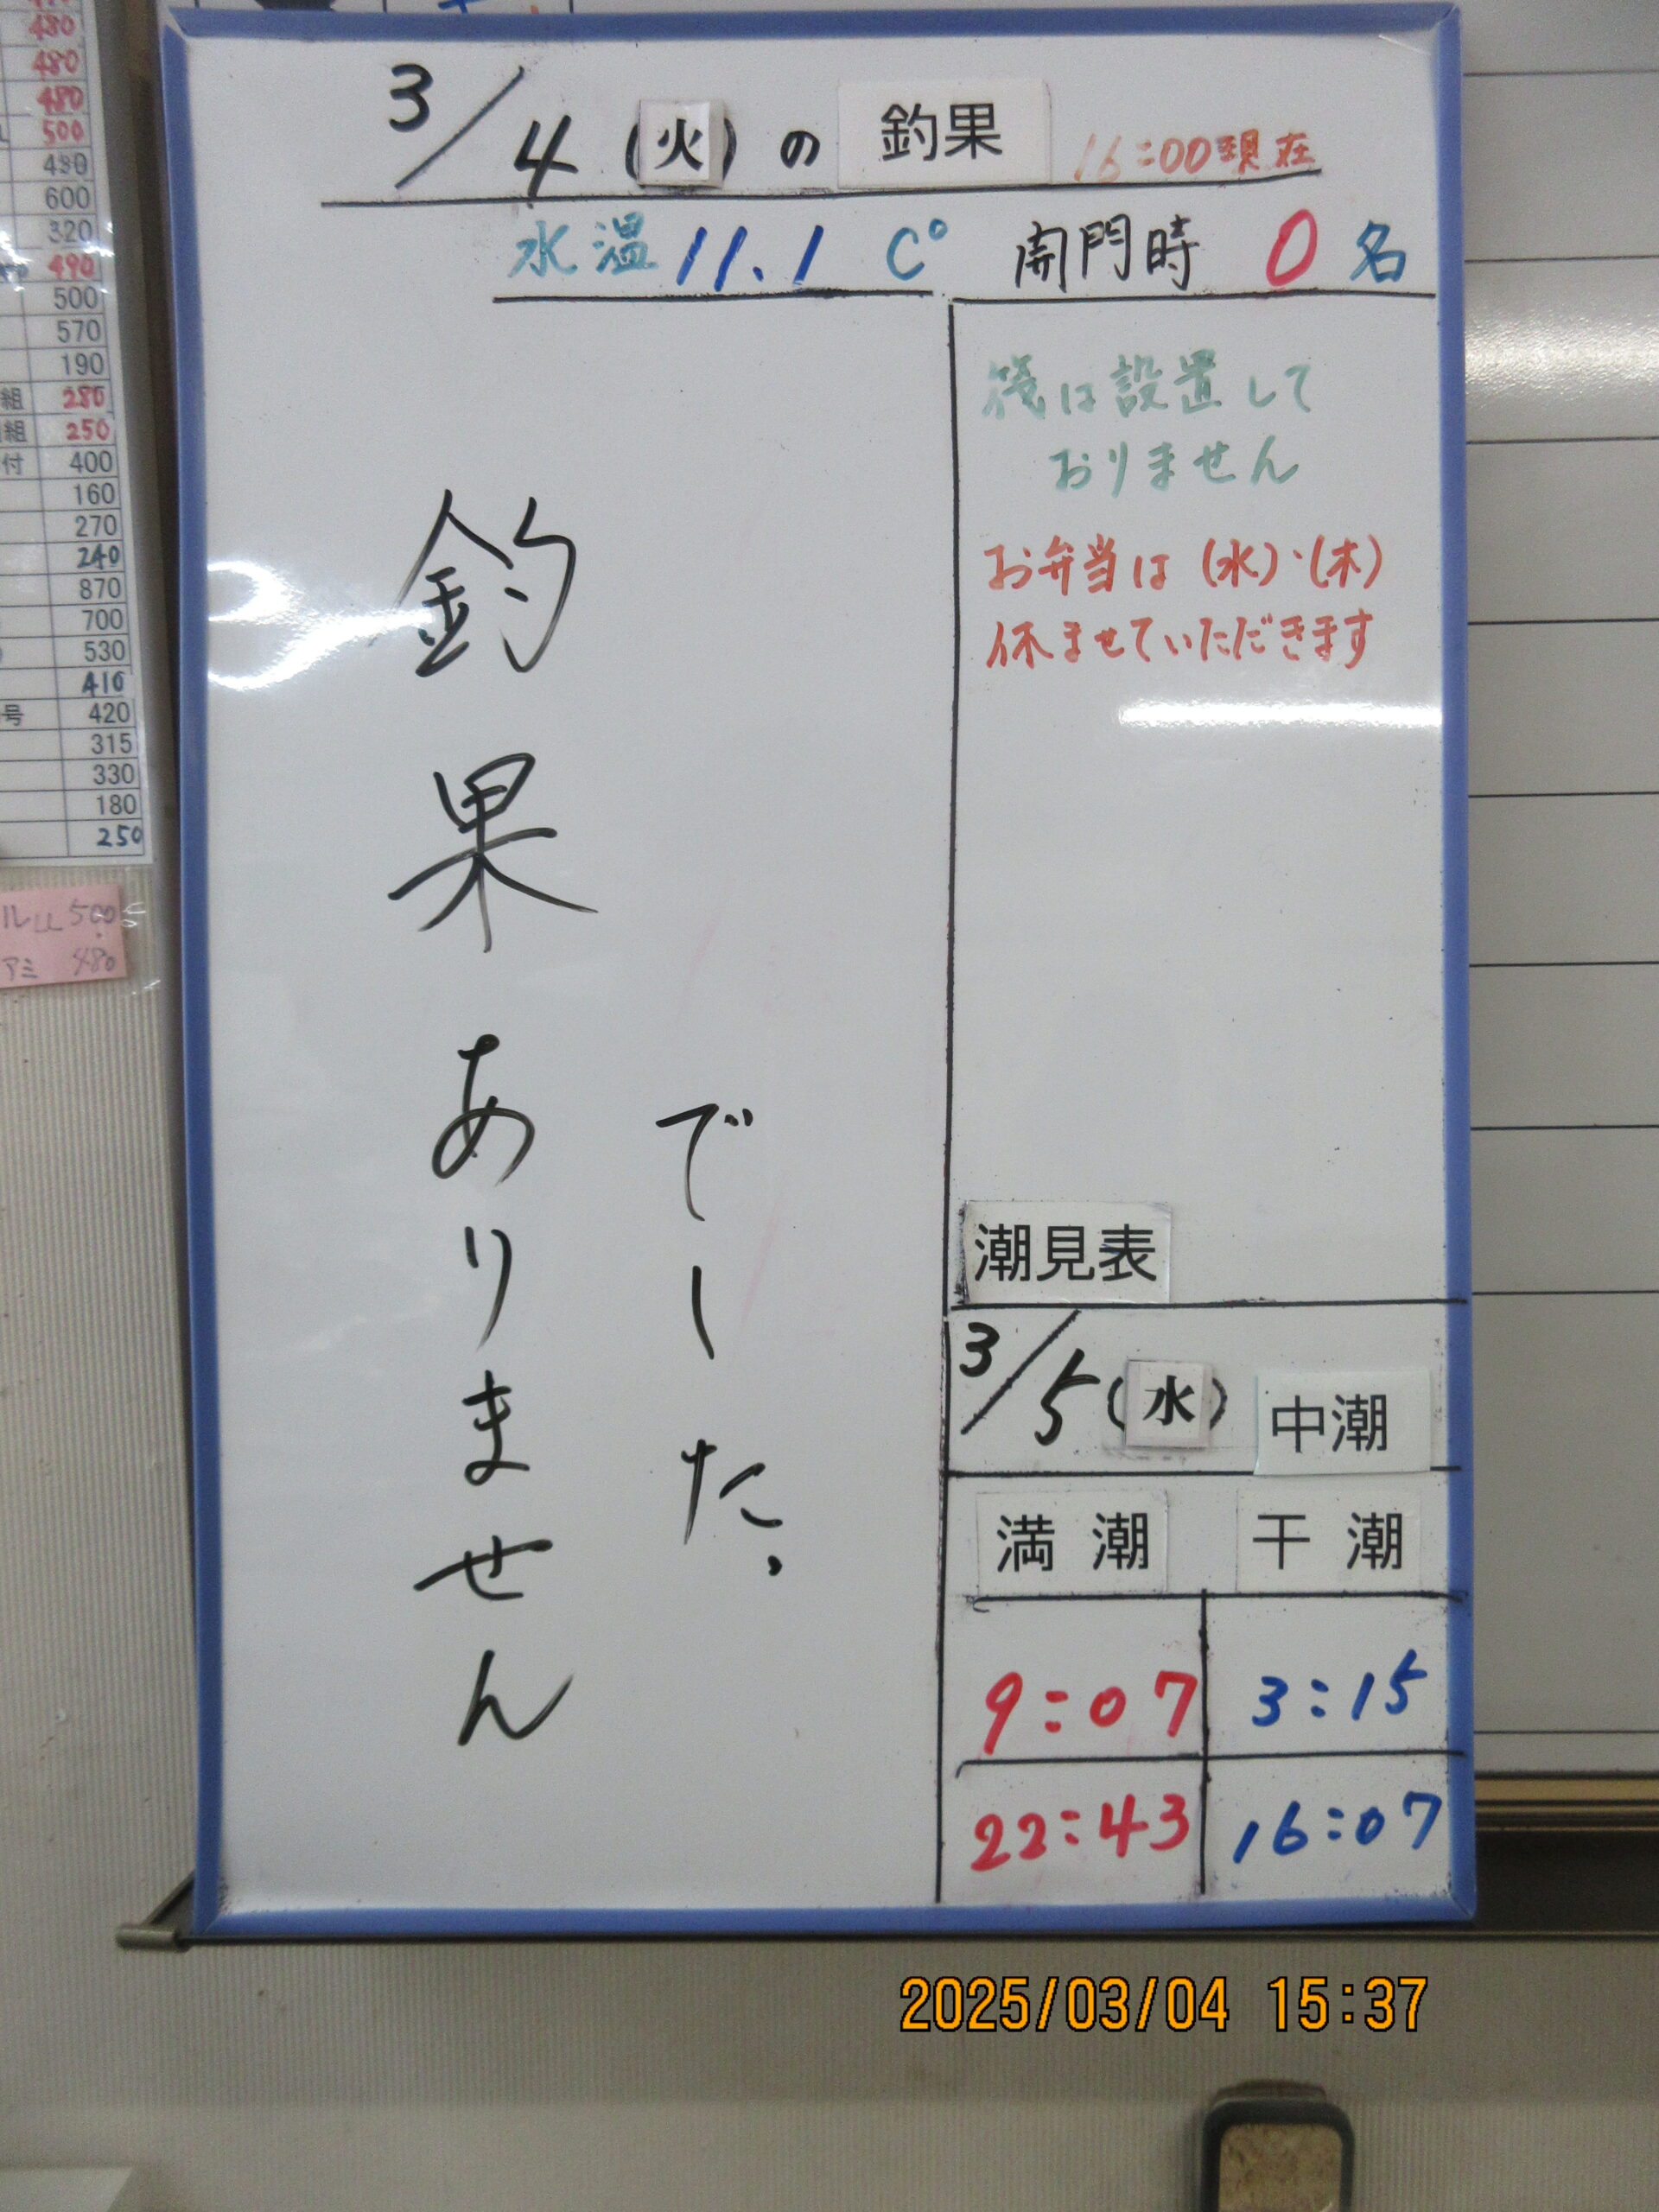 3/4(火)の釣果 16:00現在
水温11.1 C° 開門時 0名
釣果ありません
でした。
筏は設置して
おりません
お弁当は(水)・(木)
休ませていただきます
潮見表
3/5(水) 中潮
満潮 干潮
9:07 3:15
22:43 16:07
480
480
480
500
490
600
320
490
500
570
190
組 280
組 250
付 400
160
270
240
870
700
530
410
号 420
315
330
180
250
ルLL 500
アミ 480
2025/03/04 15:37